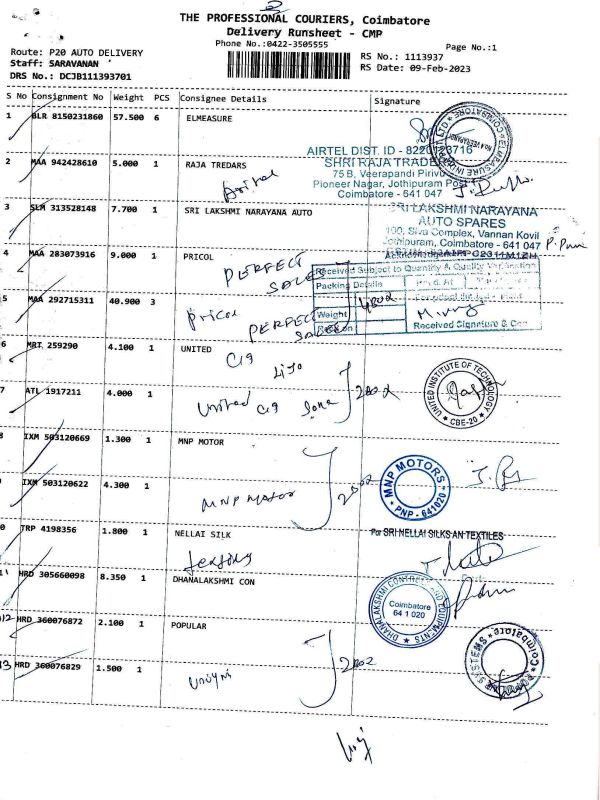 THE PROFESSIONAL COURIERS, Coimbatore
Delivery Runsheet - CMP
Phone No.:0422-3505555
Page No.:1
Route: P20 AUTO DELIVERY
Staff: SARAVANAN
DRS No.: DCJB111393701
RS No.: 1113937
RS Date: 09-Feb-2023
S No Consignment No Weight PCS Consignee Details Signature
1 BLR 8150231860 57.500 6 ELMEASURE
2 MAA 942428610 5.000 1 RAJA TREDARS
AIRTEL DIST. ID - 8220123716
SHRI RAJA TRADERS
75 B, Veerapandi Pirivu
Pioneer Nagar, Jothipuram Post
Coimbatore - 641 047
3 SLM 313528148 7.700 1 SRI LAKSHMI NARAYANA AUTO
SRI LAKSHMI NARAYANA
AUTO SPARES
100, Siva Complex, Vannan Kovil
Jothipuram, Coimbatore - 641 047
4 MAA 283073916 9.000 1 PRICOL
PERFECT
SALES
Received Subject to Quantity & Quality Verification
Packing Details
Weight
Received Signature &
5 MAA 292715311 40.900 3
Pricol
PERFECT
SALES
6 MRT 259290 4.100 1 UNITED
Cig
UNITED INSTITUTE OF TECHNOLOGY
CBE-20
7 ATL 1917211 4.000 1
United Cig
2002
8 IXM 503120669 1.300 1 MNP MOTOR
MNP MOTORS
PNP - 641020
9 IXM 503120622 4.300 1
MNP Motor
2002
10 TRP 4198356 1.800 1 NELLAI SILK
For SRI NELLAI SILKS AN TEXTILES
11 HRD 305660098 8.350 1 DHANALAKSHMI CON
Coimbatore
64 1 020
12 HRD 360076872 2.100 1 POPULAR
13 HRD 360076829 1.500 1
2002